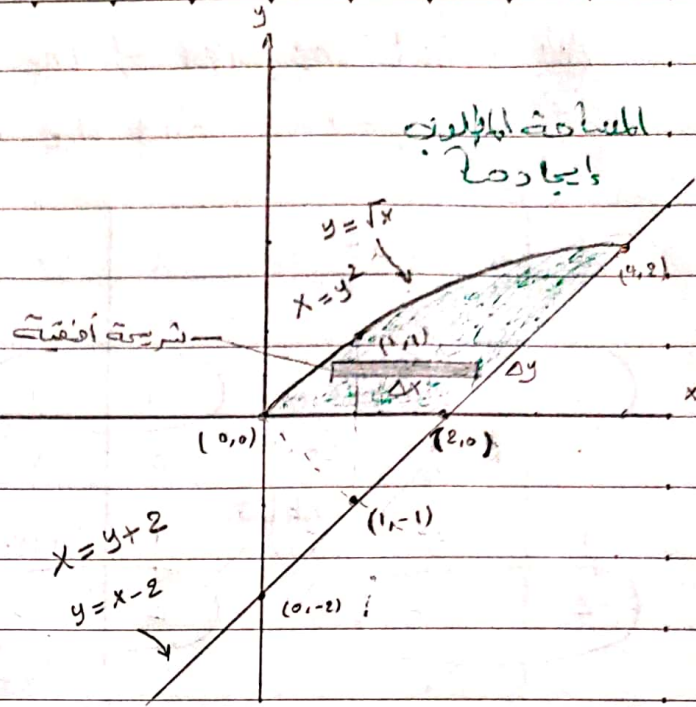 y
المساحة المطلوب
إيجادها
y = √x
x = y²
(4,2)
شريحة أفقية
(1,1)
Δx
Δy
x
(0,0)
(2,0)
(1,-1)
x = y+2
y = x-2
(0,-2)